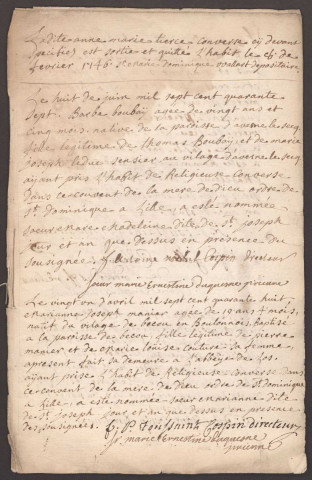 La dite anne marie tierce converse cy devant
specifiez est sortie et quitté L'habit le
fevrier 1746 dominique depositaire
Le huit de juin mil sept cent quarante
sept Barbe boubay agee de vingt ans et
cinq mois native de la paroisse d'avesne le secq
fille legitime de thomas Boubay et de maria
joseph leduc censier au vilage d'avesne le secq
ayant pres L'habit de Religieuse converse
dans ce couvent de la mere de Dieu ordre de
St Dominique a Lille, a esté nommée
soeur marie madeleine dite de St joseph
jour et an que dessus en presence des
Sousignez
soeur marie Ernestine duquesne prieure
Le vingt un d'avril mil sept cent quarante huit
marianne joseph manier agee de 19 ans 7 mois
natif du vilage de becou en boulonnais baptisé
a la paroisse de becou, fille legitime de pierre
manier et de marie louise couture sa femme
apresent fait sa demeure a L'abbeÿe de Los
ayant prise L'habit de Religieuse converse dans
ce convent de la mere de Dieu ordre de St dominique
a Lille a este nommée soeur marianne dite
de St joseph jour et an que dessus en presence
des sousignees
f. P. Toussaint Cossin directeur
Sr marie Ernestine duquesne
prieure